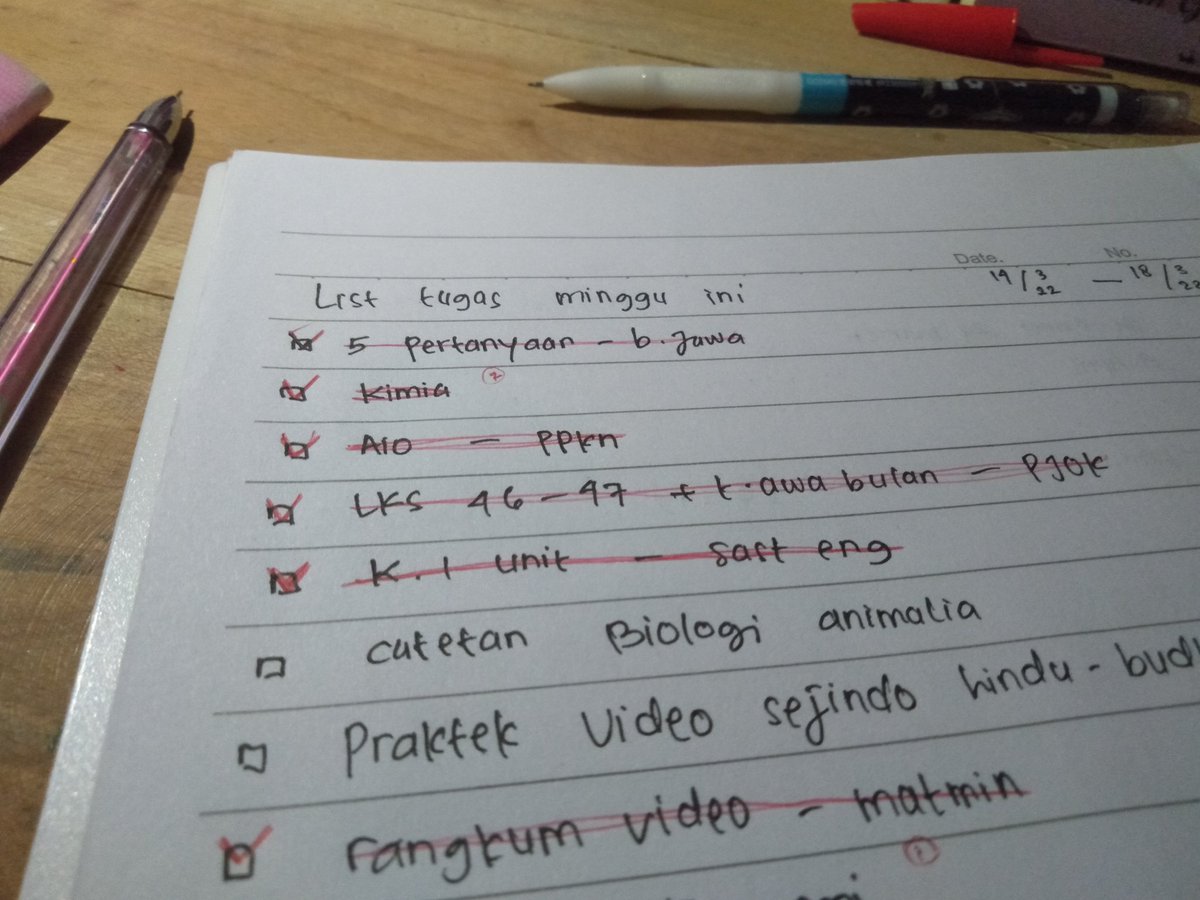 Date. No.
14/3/22 — 18/3/22
List tugas minggu ini
5 pertanyaan - b. Jawa
kimia
A10 — PPkn
LKS 46-47 + t. awa bulan — PJOK
K. 1 Unit — Sast eng
catetan Biologi animalia
Praktek Video sejindo hindu-
rangkum video - matmin